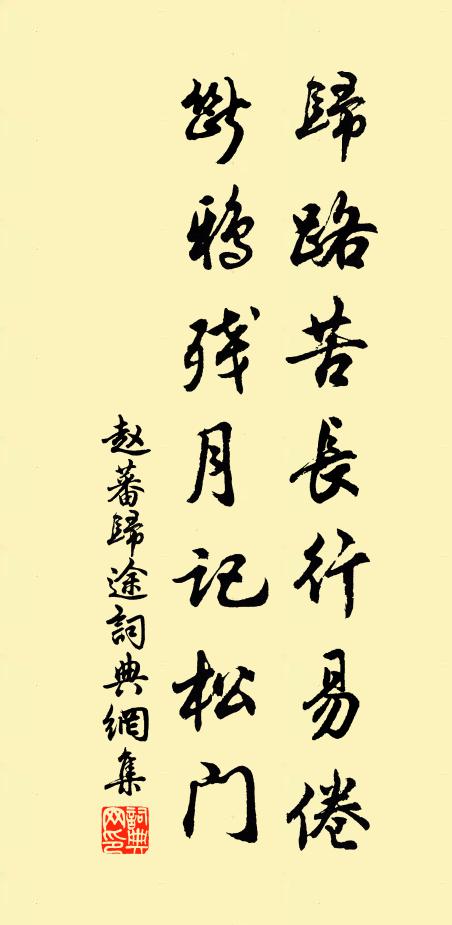 歸路苦長行易倦
斷鴉殘月記松门
赵蕃歸途詞典網集
詞典网印